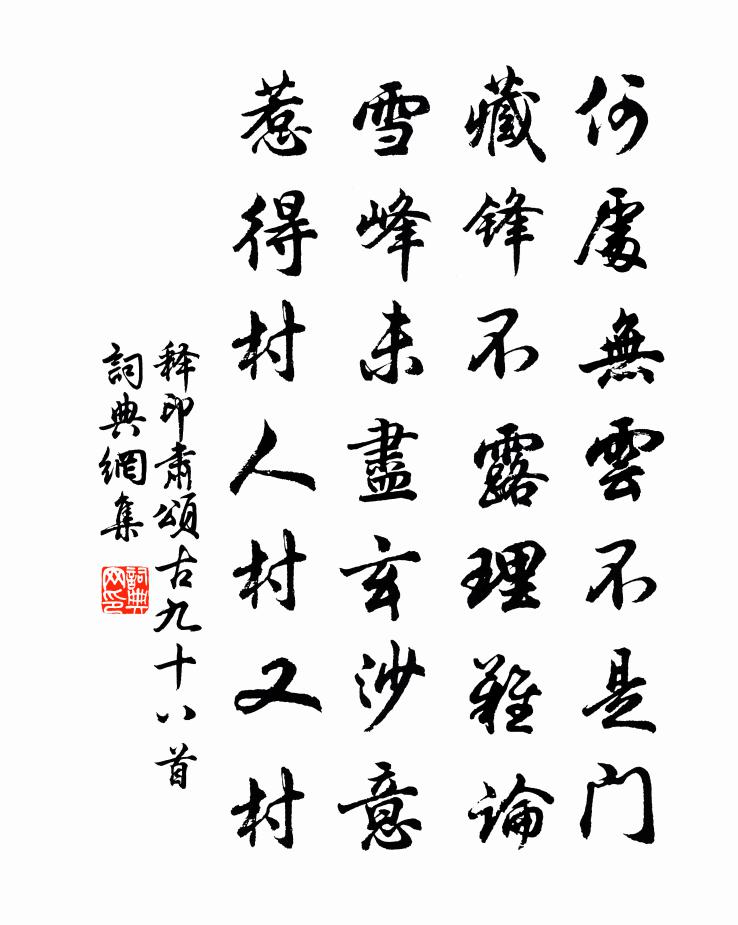 何處無雲不是门
藏锋不露理難论
雪峰未盡玄沙意
惹得村人村又村
释印肅頌古九十八首
詞典網集
詞典网印